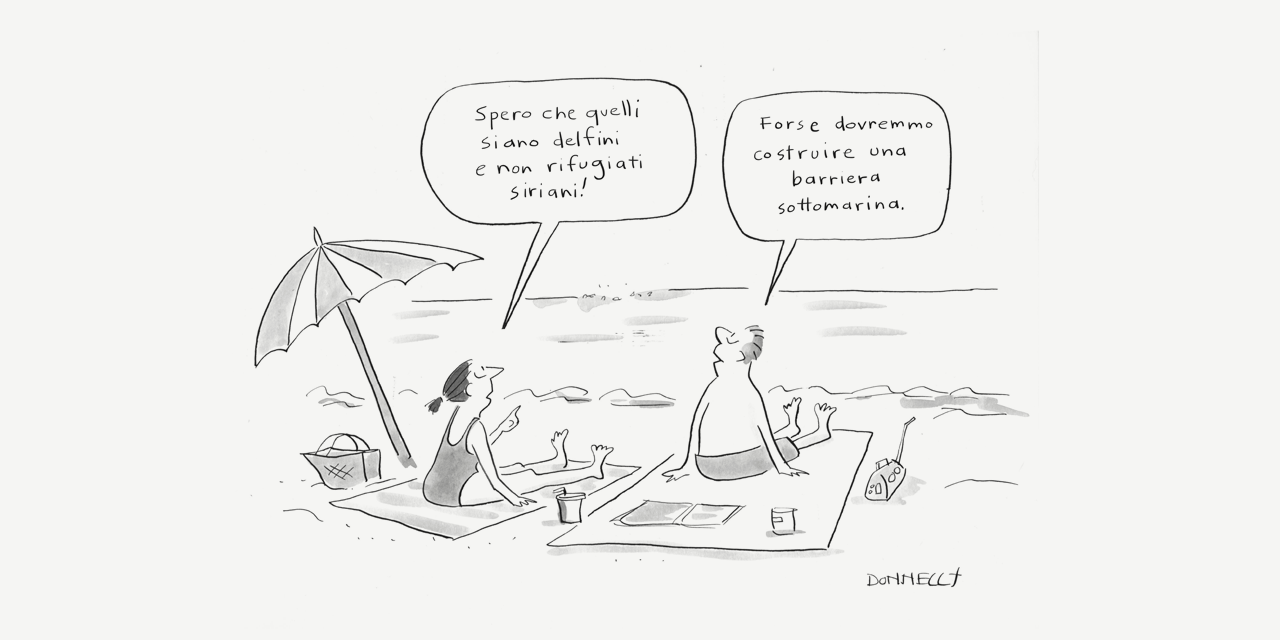 Spero che quelli
siano delfini
e non rifugiati
siriani!
Forse dovremmo
costruire una
barriera
sottomarina.
DONNELLY